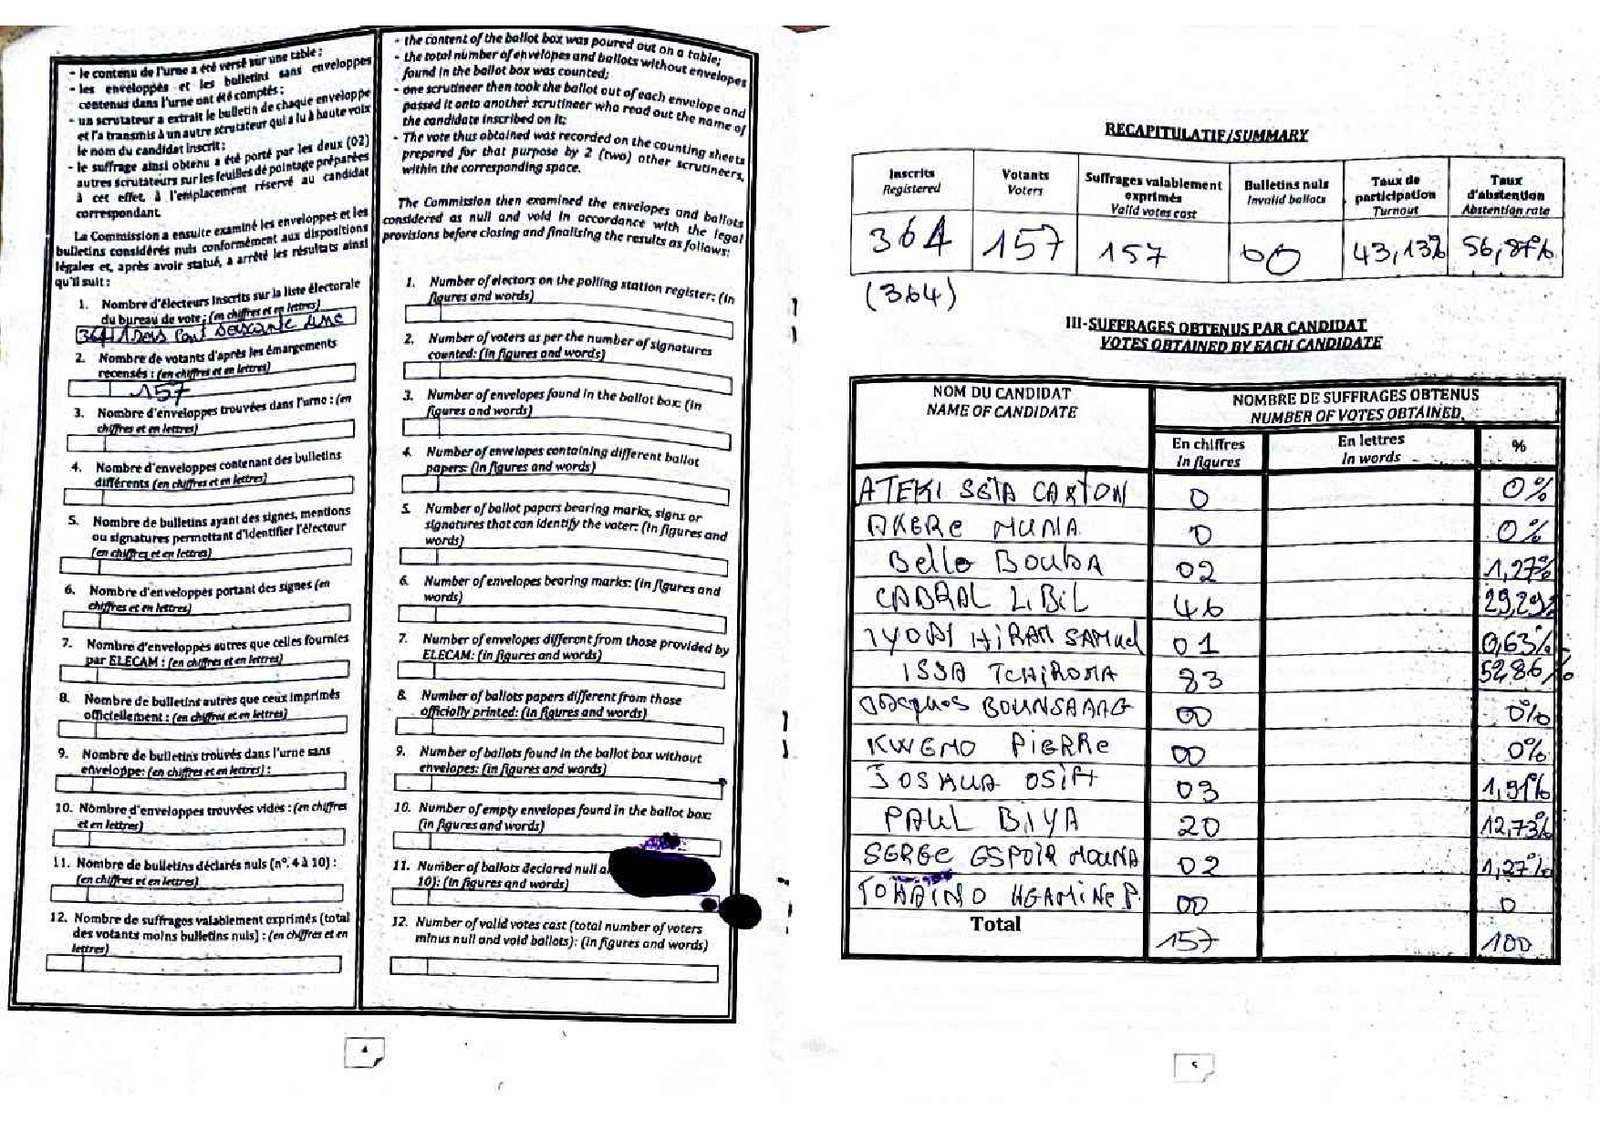 - le contenu de l'urne a été versé sur une table ;
- les enveloppes et les bulletins sans enveloppes
contenus dans l'urne ont été comptés ;
- un scrutateur a extrait le bulletin de chaque enveloppe
et l'a transmis à un autre scrutateur qui a lu à haute voix
le nom du candidat inscrit ;
- le suffrage ainsi obtenu a été porté par les deux (02)
autres scrutateurs sur les feuilles de pointage préparées
à cet effet, à l'emplacement réservé au candidat
correspondant.
La Commission a ensuite examiné les enveloppes et les
bulletins considérés nuls conformément aux dispositions
légales et, après avoir statué, a arrêté les résultats ainsi
qu'il suit :
1. Nombre d'électeurs inscrits sur la liste électorale
du bureau de vote : (en chiffres et en lettres)
364
2. Nombre de votants d'après les émargements
recensés : (en chiffres et en lettres)
157
3. Nombre d'enveloppes trouvées dans l'urne : (en
chiffres et en lettres)
4. Nombre d'enveloppes contenant des bulletins
différents (en chiffres et en lettres)
5. Nombre de bulletins ayant des signes, mentions
ou signatures permettant d'identifier l'électeur
(en chiffres et en lettres)
6. Nombre d'enveloppes portant des signes (en
chiffres et en lettres)
7. Nombre d'enveloppes autres que celles fournies
par ELECAM : (en chiffres et en lettres)
8. Nombre de bulletins autres que ceux imprimés
officiellement : (en chiffres et en lettres)
9. Nombre de bulletins trouvés dans l'urne sans
enveloppe: (en chiffres et en lettres) :
10. Nombre d'enveloppes trouvées vides : (en chiffres
et en lettres)
11. Nombre de bulletins déclarés nuls (n°. 4 à 10) :
(en chiffres et en lettres)
12. Nombre de suffrages valablement exprimés (total
des votants moins bulletins nuls) : (en chiffres et en
lettres)
- the content of the ballot box was poured out on a table;
- the total number of envelopes and ballots without envelopes
found in the ballot box was counted;
- one scrutineer then took the ballot out of each envelope and
passed it onto another scrutineer who read out the name of
the candidate inscribed on it;
- The vote thus obtained was recorded on the counting sheets
prepared for that purpose by 2 (two) other scrutineers,
within the corresponding space.
The Commission then examined the envelopes and ballots
considered as null and void in accordance with the legal
provisions before closing and finalising the results as follows:
1. Number of electors on the polling station register: (in
figures and words)
2. Number of voters as per the number of signatures
counted: (in figures and words)
3. Number of envelopes found in the ballot box: (in
figures and words)
4. Number of envelopes containing different ballot
papers: (in figures and words)
5. Number of ballot papers bearing marks, signs or
signatures that can identify the voter: (in figures and
words)
6. Number of envelopes bearing marks: (in figures and
words)
7. Number of envelopes different from those provided by
ELECAM: (in figures and words)
8. Number of ballots papers different from those
officially printed: (in figures and words)
9. Number of ballots found in the ballot box without
envelopes: (in figures and words)
10. Number of empty envelopes found in the ballot box:
(in figures and words)
11. Number of ballots declared null
10): (in figures and words)
12. Number of valid votes cast (total number of voters
minus null and void ballots): (in figures and words)
4
RECAPITULATIF/SUMMARY
Inscrits Registered Votants Voters Suffrages valablement exprimés Valid votes cast Bulletins nuls Invalid ballots Taux de participation Turnout Taux d'abstention Abstention rate
364 157 157 00 43,13% 56,87%
(364)
III-SUFFRAGES OBTENUS PAR CANDIDAT
VOTES OBTAINED BY EACH CANDIDATE
NOM DU CANDIDAT NOMBRE DE SUFFRAGES OBTENUS
NAME OF CANDIDATE NUMBER OF VOTES OBTAINED
En chiffres En lettres %
In figures In words
ATEKI SETA CAXTON 0 0%
AKERE MUNA 0 0%
Bello Bouba 02 1,27%
CABRAL LIBIL 46 29,29%
IYODI HIRAM SAMUEL 01 0,63%
ISSA TCHIROMA 83 52,86%
Jacques BOUNGAANG 00 0%
KWEMO PIERRE 00 0%
JOSHUA OSIH 03 1,91%
PAUL BIYA 20 12,73%
SERGE ESPOIR MOUNA 02 1,27%
TOMAINO HGAMINE P. 00 0
Total 157 100
5